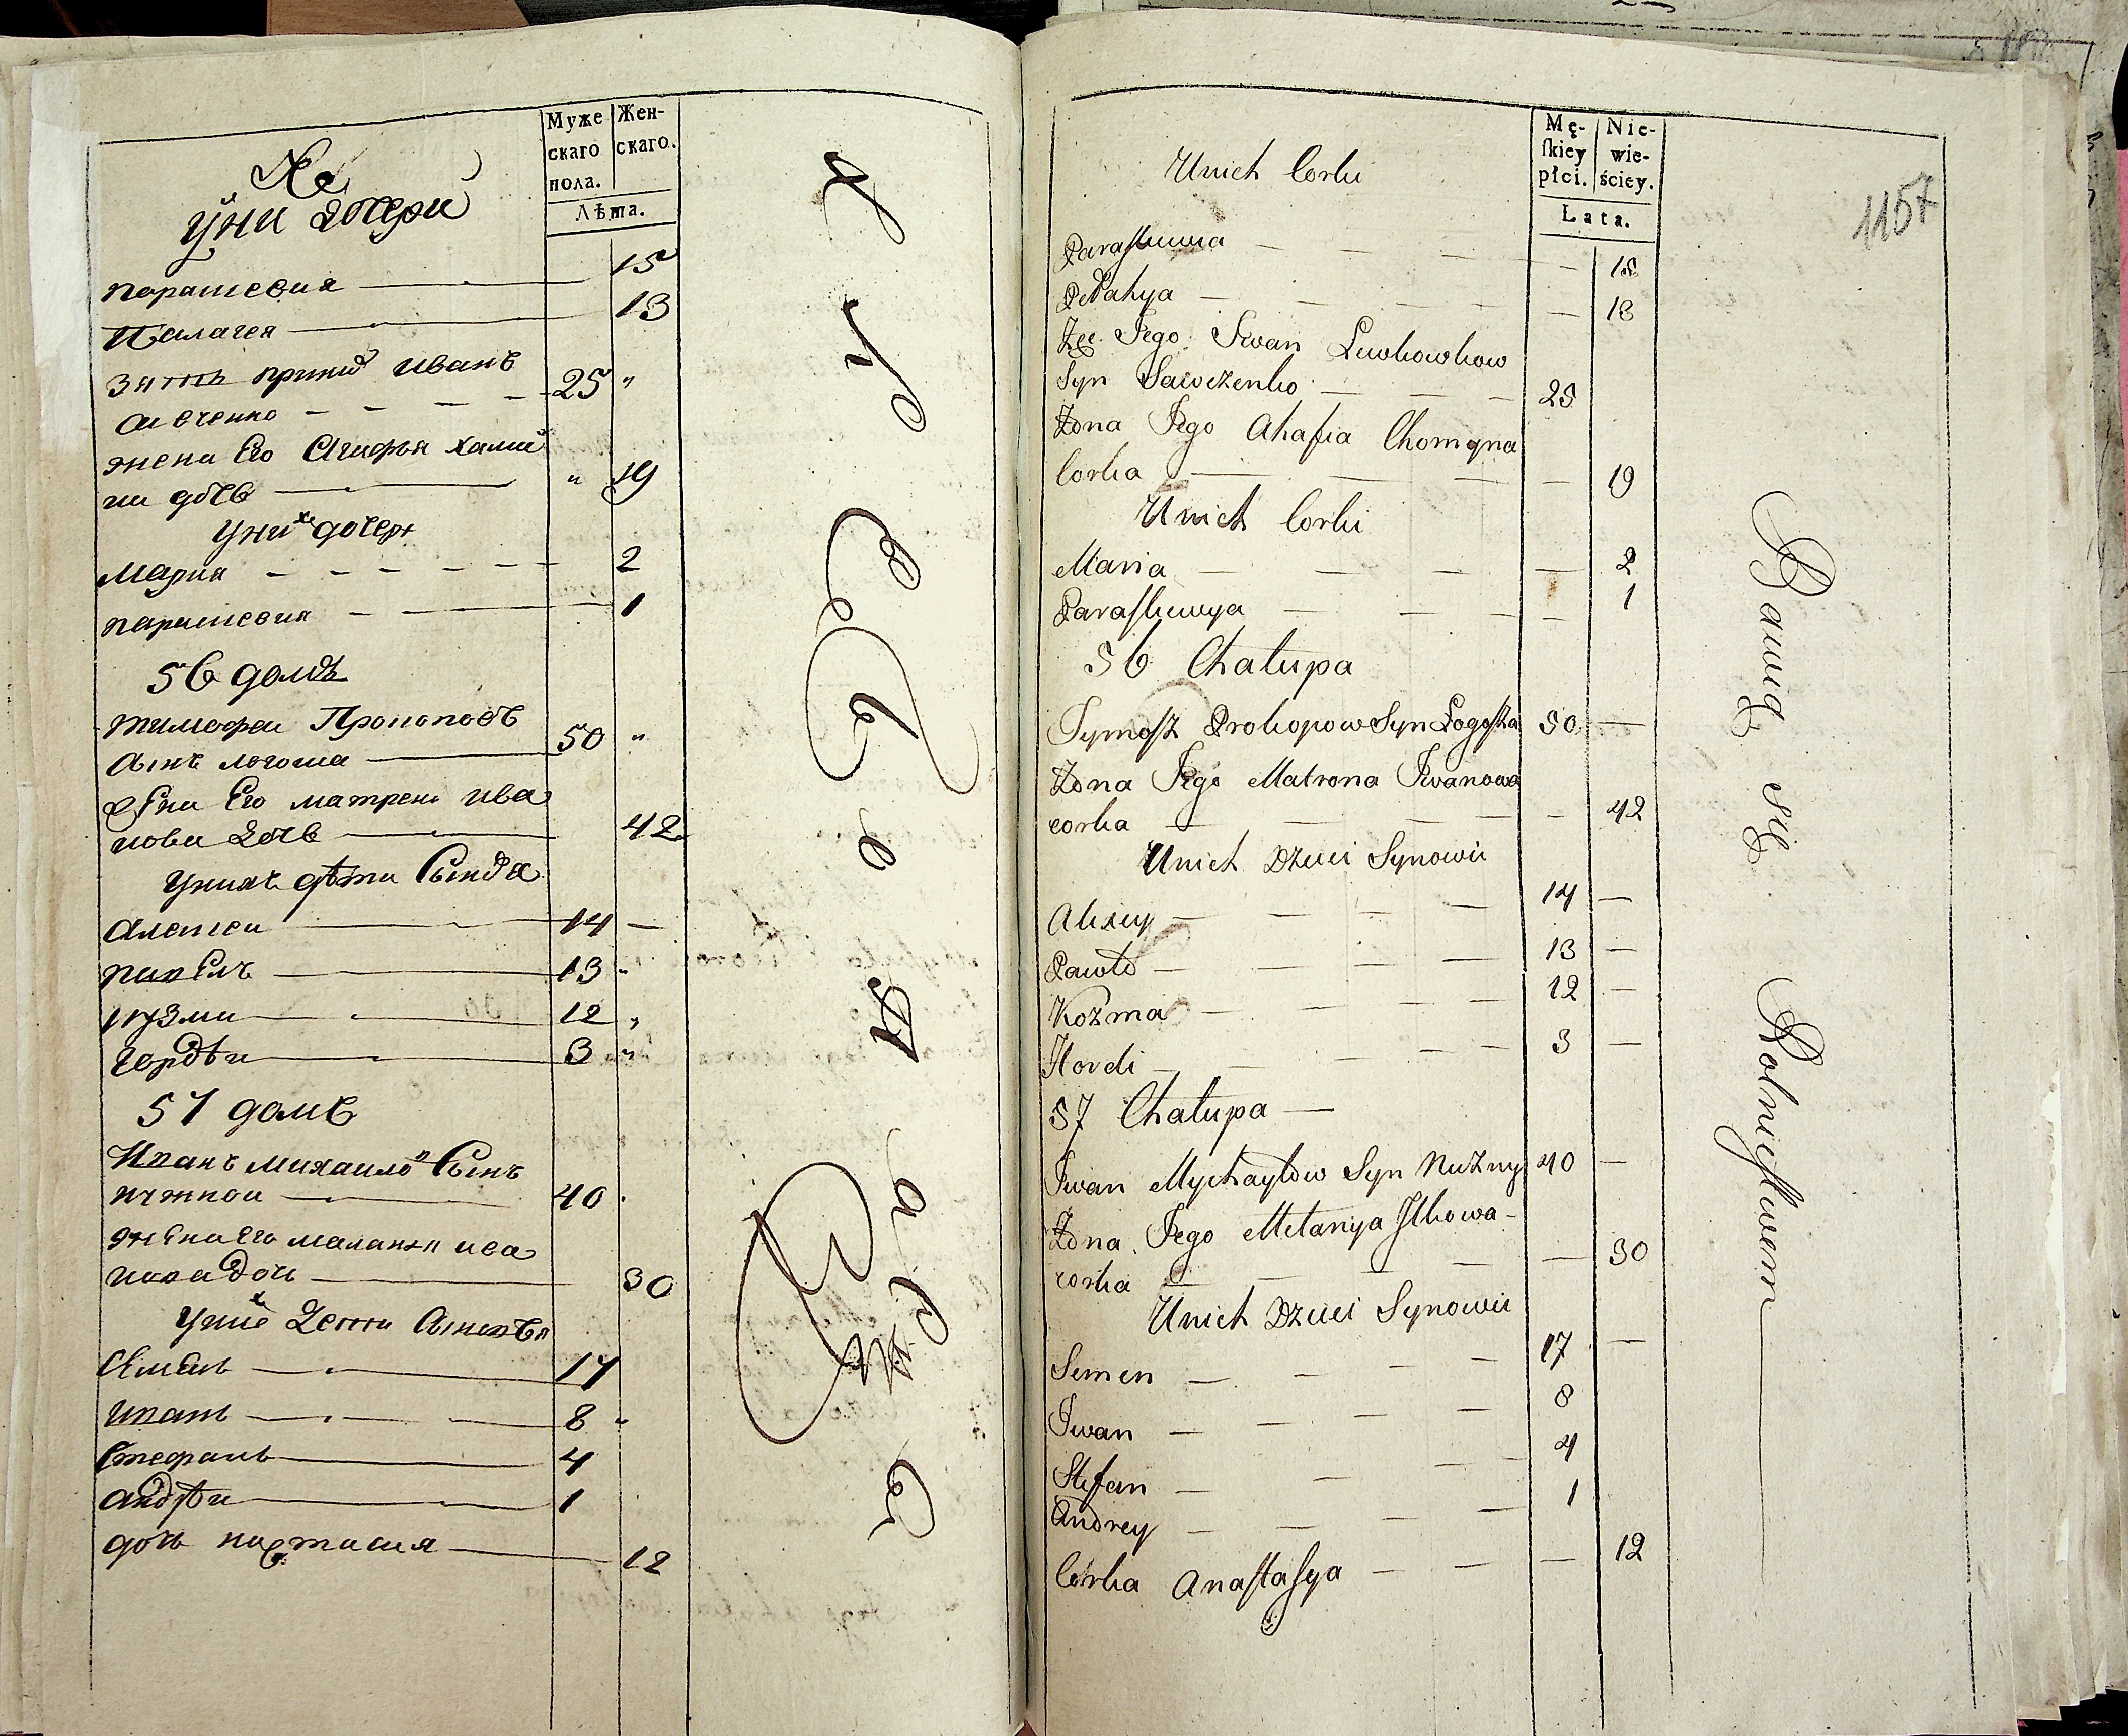 Муже
скаго
пола.
Жен-
скаго.
Лѣта.
х
уни дочери
парасковия 15
Палагея 13
зять прииш Иванъ
савченко 25 "
жена Его Агафья хами
на дочь " 19
уних дочери
Мария 2
парасковия 1
56 домъ
тимофеи Прокоповъ
сынъ логоша 50 "
жена Его матрена ива
нова дочь 42
униха дѣти Сынова
алексеи 14 —
павелъ 13 "
кузма 12 "
гордѣи 3 "
57 домъ
Иванъ михаило Сынъ
нужнои 40
жена Его маланья ива
нова дочь 30
уних дети Сыновья
Семенъ 17
иванъ 8 "
Стефанъ 4
андрѣи 1
дочь настасия 12
Mę-
skiey
płci.
Nie-
wie-
ściey.
Lata.
1157
Unich Corki
Paraskiewia — 15
Pelahya — 13
Zęć Jego Iwan Lewkowkow
Syn Sawczenko 25
Żona Jego Ahafia Chomyna
Corka — 19
Unich Corki
Maria — 2
Paraskiewya — 1
56 Chałupa
Tymosz Prokopow Syn Łogosza 50 —
Żona Jego Matrona Iwanowa
corka — 42
Unich Dzieci Synowie
Alexey 14 —
Pawło 13 —
Kozma 12 —
Hordi 3 —
57 Chałupa —
Iwan Mychayłow Syn Nużny 40 —
Żona Jego Mełanya Ilkowa
corka — 30
Unich Dzieci Synowie
Semen 17 —
Iwan 8
Stefan 4
Andrey 1
Córka Anastasya — 12
Bawią się Rolnictwem